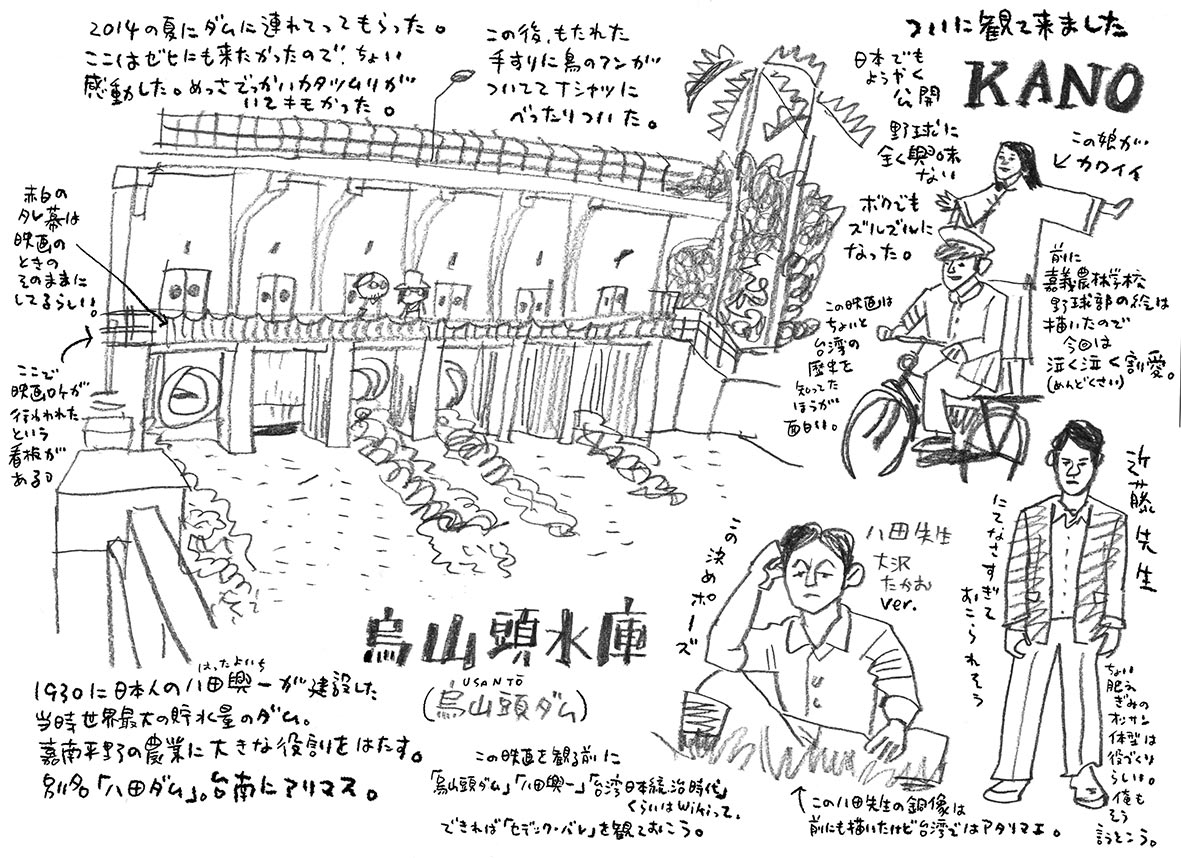 2014の夏にダムに連れてってもらった。
ここはゼヒにも来たかったので、ちょい
感動した。めっさでっかいカタツムリが
いてキモかった。
この後、もたれた
手すりに鳥のフンが
ついててTシャツに
べったりついた。
ついに観て来ました
KANO
日本でも
ようやく
公開
野球に
全く興味
ない
ボクでも
ズルズルに
なった。
この娘が
カワイイ
赤白の
タレ幕は
映画の
ときの
そのままに
してるらしい。
ここで
映画ロケが
行われた
という
看板が
ある。
この映画は
ちょいと
台湾の
歴史を
知ってた
ほうが
面白い。
前に
嘉義農林学校
野球部の絵は
描いたので
今回は
泣く泣く割愛。
(めんどくさい)
近藤先生
にてなさすぎて
おこられそう
ちょい
肥え
ぎみの
オッサン
体型は
役づくり
らしい。
俺も
そう
言うとこう。
八田先生
大沢
たかお
ver.
この決めポーズ
烏山頭水庫
USANTŌ
(烏山頭ダム)
はったよいち
1930に日本人の八田與一が建設した
当時世界最大の貯水量のダム。
嘉南平野の農業に大きな役割をはたす。
別名「八田ダム」。台南にアリマス。
この映画を観る前に
「烏山頭ダム」「八田與一」「台湾日本統治時代」
くらいはWikiって、
できれば「セデック・バレ」を観ておこう。
この八田先生の銅像は
前にも描いたけど台湾ではアタリマエ。